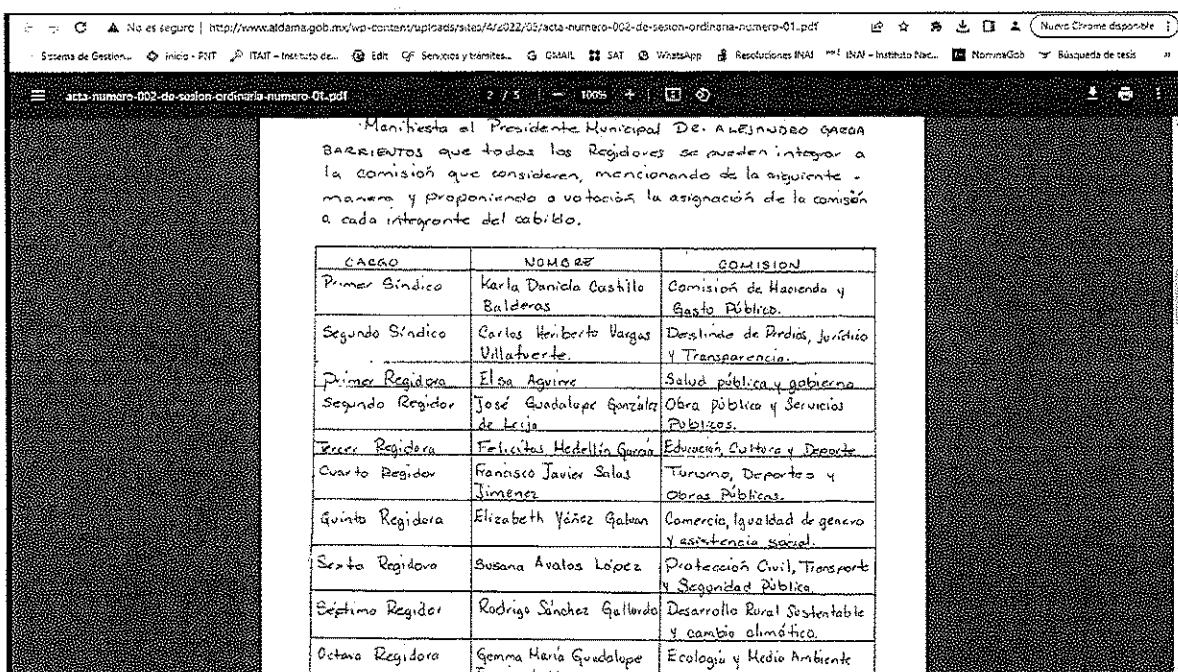 No es seguro | http://www.aldama.gob.mx/wp-content/uploads/sites/4/2022/05/acta-numero-002-de-sesion-ordinaria-numero-01.pdf Nuevo Chrome disponible
Sistema de Gestion... inicio - PNT ITAIT – Instituto de... Edit Servicios y trámites... GMAIL SAT WhatsApp Resoluciones INAI INAI – Instituto Nac... NominaGob Búsqueda de tesis »
acta-numero-002-de-sesion-ordinaria-numero-01.pdf 2 / 5 — 100% +
Manifiesta el Presidente Municipal DR. ALEJANDRO
BARRIENTOS que todos los Regidores se pueden integrar a
la comisión que consideren, mencionando de la siguiente -
manera y proponiendo a votación la asignación de la comisión
a cada integrante del cabildo.
CARGO NOMBRE COMISION
Primer Síndico Karla Daniela Castillo Comisión de Hacienda y
Balderas Gasto Público.
Segundo Síndico Carlos Heriberto Vargas Deslinde de Predios, Jurídico
Villafuerte. y Transparencia.
Primer Regidora Elsa Aguirre Salud pública y gobierno
Segundo Regidor José Guadalupe González Obra pública y Servicios
de Leija Publicos.
Tercer Regidora Felicitas Medellín García Educación, Cultura y Deporte
Cuarto Regidor Francisco Javier Salas Turismo, Deportes y
Jimenez Obras Públicas.
Quinto Regidora Elizabeth Yáñez Galvan Comercio, Igualdad de genero
y asistencia social.
Sexta Regidora Susana Avalos López Protección Civil, Transporte
y Seguridad Pública.
Séptimo Regidor Rodrigo Sánchez Gallardo Desarrollo Rural Sustentable
y cambio climático.
Octava Regidora Gemma María Guadalupe Ecología y Medio Ambiente